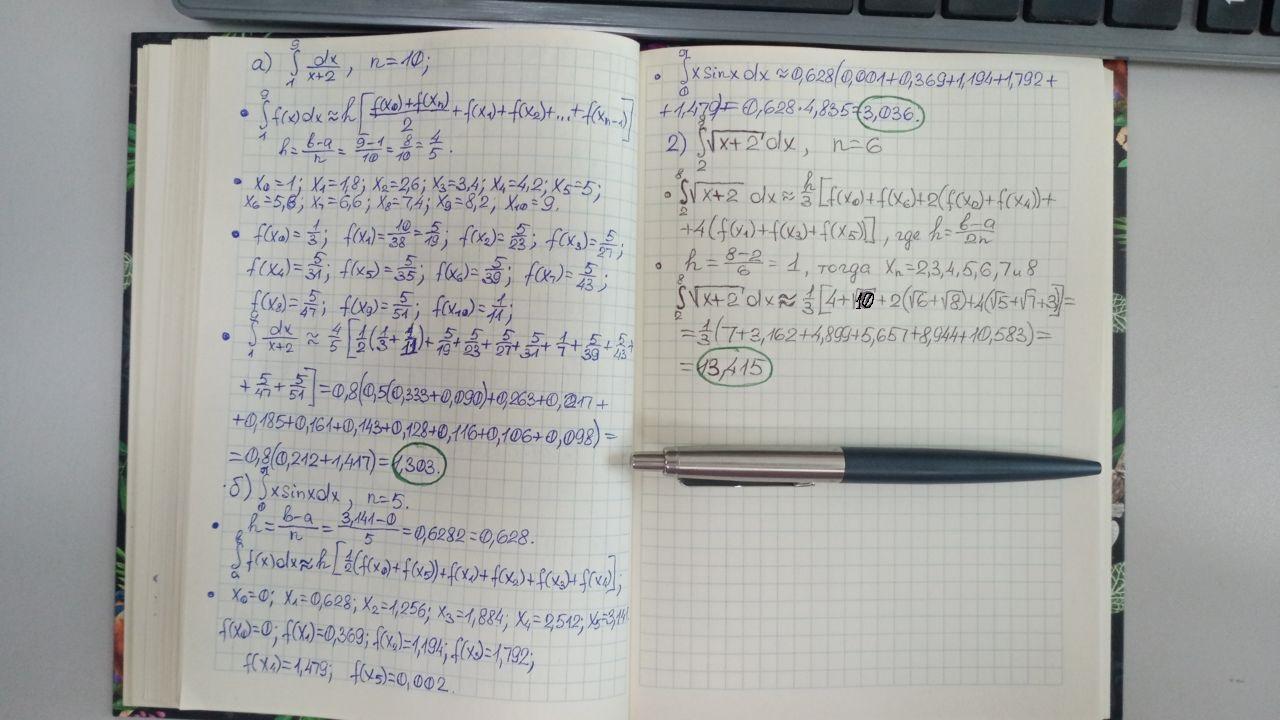 а) ∫₁⁹ dx/(x+2), n=10;
• ∫₁⁹ f(x)dx≈h[(f(x₀)+f(xₙ))/2+f(x₁)+f(x₂)+...+f(xₙ₋₁)]
h=(b-a)/n=(9-1)/10=8/10=4/5.
• x₀=1; x₁=1,8; x₂=2,6; x₃=3,4; x₄=4,2; x₅=5;
x₆=5,8; x₇=6,6; x₈=7,4; x₉=8,2, x₁₀=9.
• f(x₀)=1/3; f(x₁)=10/38=5/19; f(x₂)=5/23; f(x₃)=5/27;
f(x₄)=5/31; f(x₅)=5/35; f(x₆)=5/39; f(x₇)=5/43;
f(x₈)=5/47; f(x₉)=5/51; f(x₁₀)=1/11;
• ∫₁⁹ dx/(x+2)≈4/5[1/2(1/3+1/11)+5/19+5/23+5/27+5/31+1/7+5/39+5/43+
+5/47+5/51]=0,8(0,5(0,333+0,090)+0,263+0,217+
+0,185+0,161+0,143+0,128+0,116+0,106+0,098)=
=0,8(0,212+1,417)=1,303.
б) ∫xsinxdx, n=5.
• h=(b-a)/n=(3,141-0)/5=0,6282=0,628.
∫f(x)dx≈h[1/2(f(x₀)+f(x₅))+f(x₁)+f(x₂)+f(x₃)+f(x₄)];
• x₀=0; x₁=0,628; x₂=1,256; x₃=1,884; x₄=2,512; x₅=3,141
f(x₀)=0; f(x₁)=0,369; f(x₂)=1,194; f(x₃)=1,792;
f(x₄)=1,479; f(x₅)=0,002.
• ∫xsinxdx≈0,628(0,001+0,369+1,194+1,792+
+1,479)=0,628·4,835=3,036.
2) ∫₂⁸√(x+2)dx, n=6
• ∫₂⁸√(x+2) dx≈h/3[f(x₀)+f(x₆)+2(f(x₂)+f(x₄))+
+4(f(x₁)+f(x₃)+f(x₅))], где h=(b-a)/2n
• h=(8-2)/6=1, тогда xₙ=2,3,4,5,6,7 и 8
∫₂⁸√(x+2)dx≈1/3[4+√10+2(√6+√8)+4(√5+√7+3)]=
=1/3(7+3,162+4,899+5,657+8,944+10,583)=
=13,415